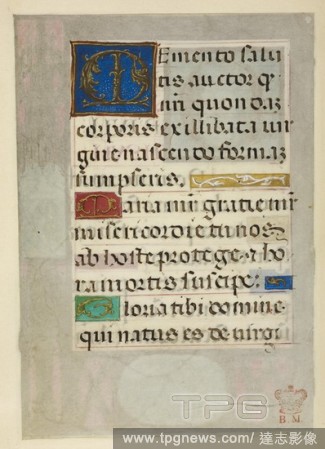 Memento salu
tis auctor q̄
nr̄i quondaʒ
corporis ex illibata vir
gine nascendo formaʒ
sumpseris.
Maria mr̄ gratie mr̄
misericordie tu nos
ab hoste protege et ho
ra mortis suscipe:
Gloria tibi domine
qui natus es de virgi
TPG
B. M.
www.tpgnews.com/ 達志影像